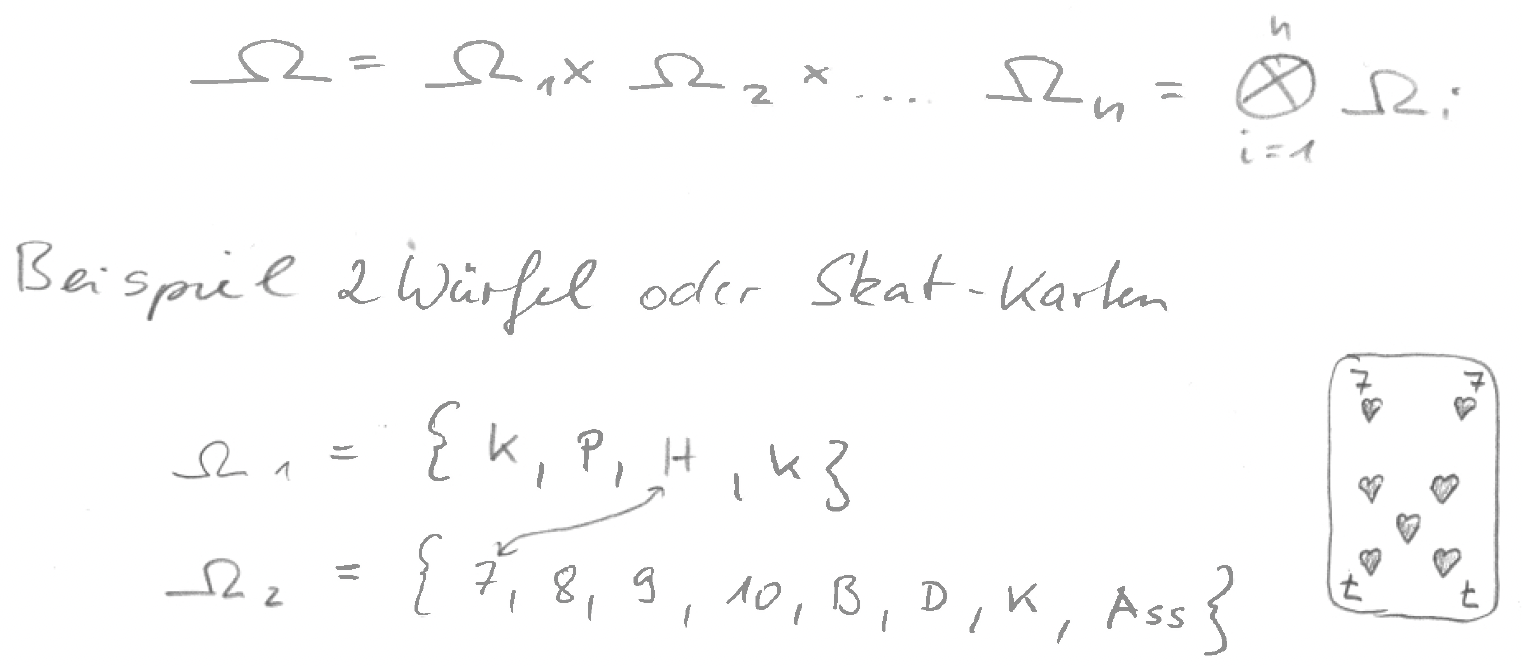 Ω = Ω₁ × Ω₂ × .... Ωₙ = ⊗ⁿᵢ₌₁ Ωᵢ
Beispiel 2 Würfel oder Skat-Karten
Ω₁ = { K, P, H, K }
Ω₂ = { 7, 8, 9, 10, B, D, K, Ass }
7 7
7 7